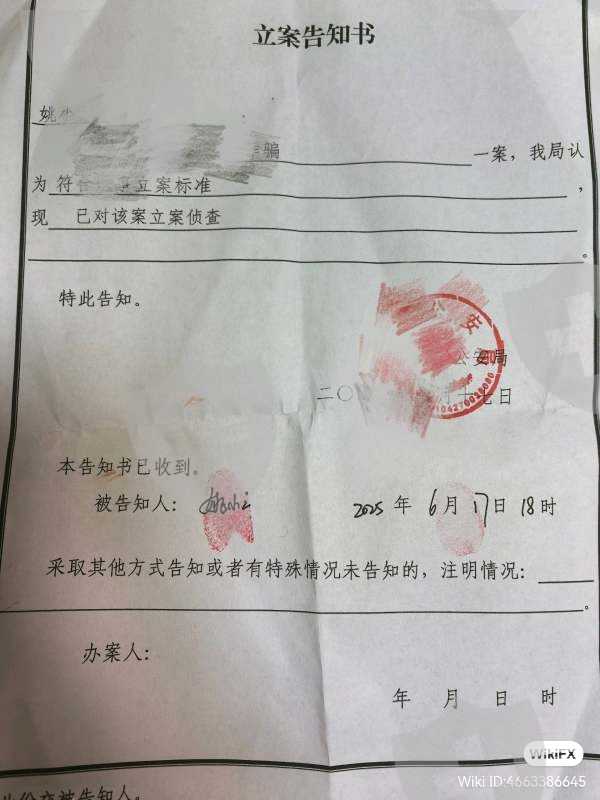 立案告知书
姚
骗 一案，我局认
为 符 立案标准 ，
现 已对该案立案侦查
。
特此告知。
公安局
公安局
二〇 月十七日
本告知书已收到。
被告知人： 2025 年 6 月 17 日 18 时
采取其他方式告知或者有特殊情况未告知的，注明情况：
。
办案人：
年 月 日 时
WikiFX
Wiki ID:4663386645
此份交被告知人。